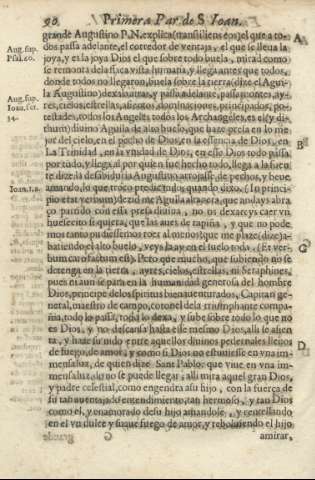 90. Primera Par. de S. Ioan.
grande Augustino P.N. explica (transiliens eos) el que a to-
dos passa adelante, el corredor de ventaja, el que se lleua la
joya, y es la joya Dios el que sobre todo buela, mirad como
se remonta de la fisica vista humana, y llega antes que todos,
donde todos no llegaron, buela sobre la tierra (dize el Agui-
la Augustino) dexa
res, cielos, estrellas, asientos, dominaciones, principados, po-
testades, todos los Angeles todos los Archangeles, es el (y di-
thum) diuino Aguila de alto buelo, que haze presa en lo me-
jor del cielo, en el pecho de Dios, en la essencia de Dios, en
La Trinidad, en la vnidad de Dios, en esso Dios todo passa
por todo, y llega al por quien fue hecho todo, llega a la fuen-
te dize la desabiduria Augustino arrojasse de pechos, y beue,
amando, lo que troco predicando, quando dixo. (In princi-
pio erat verbum) dezid me Aguila altanera, que andays abra
ço partido con essa presa diuina, no os dexareys caer vn
huelecito si quiera, que las aues de rapiña, y que no pode-
mos tanto puedesse nos roca al coraçon que me plaze (dize) a-
batiendo el alto buelo, veys la ay en el suelo toda. (Et ver-
bum caro factum est). Pero que mucho, que subiendo no se
detenga en la tierra, ayres, cielos, estrellas, ni Seraphines,
pues ni aun se para en la humanidad generosa del hombre
Dios, principe de los spiritus bienauenturados, Capitan ge-
neral, maestro de campo, coronel de la triumphante compa-
ñia, todo lo passa, todo lo dexa, y sube sobre todo lo que no
es Dios, y no descansa hasta esse mesmo Dios, alli se asien
ta, y haze su nido entre aquellos diuinos pedernales llenos
de fuego, de amor, y como si Dios no estuuiesse en vna im-
mensa luz, de quien dize Sant Pablo que viue en vna im-
mensa luz, do no se puede llegar, alli mira aquel gran Dios,
y padre celestial, como engendra a su hijo, con la fuerça de
su tan auentajado entendimiento, tan hermoso, y tan Dios
como el, y enamorado de su hijo amandole, y centellando
en el vn dulce y suaue fuego de amor, y reboluiendo el hijo
amirar,
Aug. sup.
Psal. 20.
Aug. sup.
Ioan. ser.
34.
Ioan. 1. a.
A
B
C
D